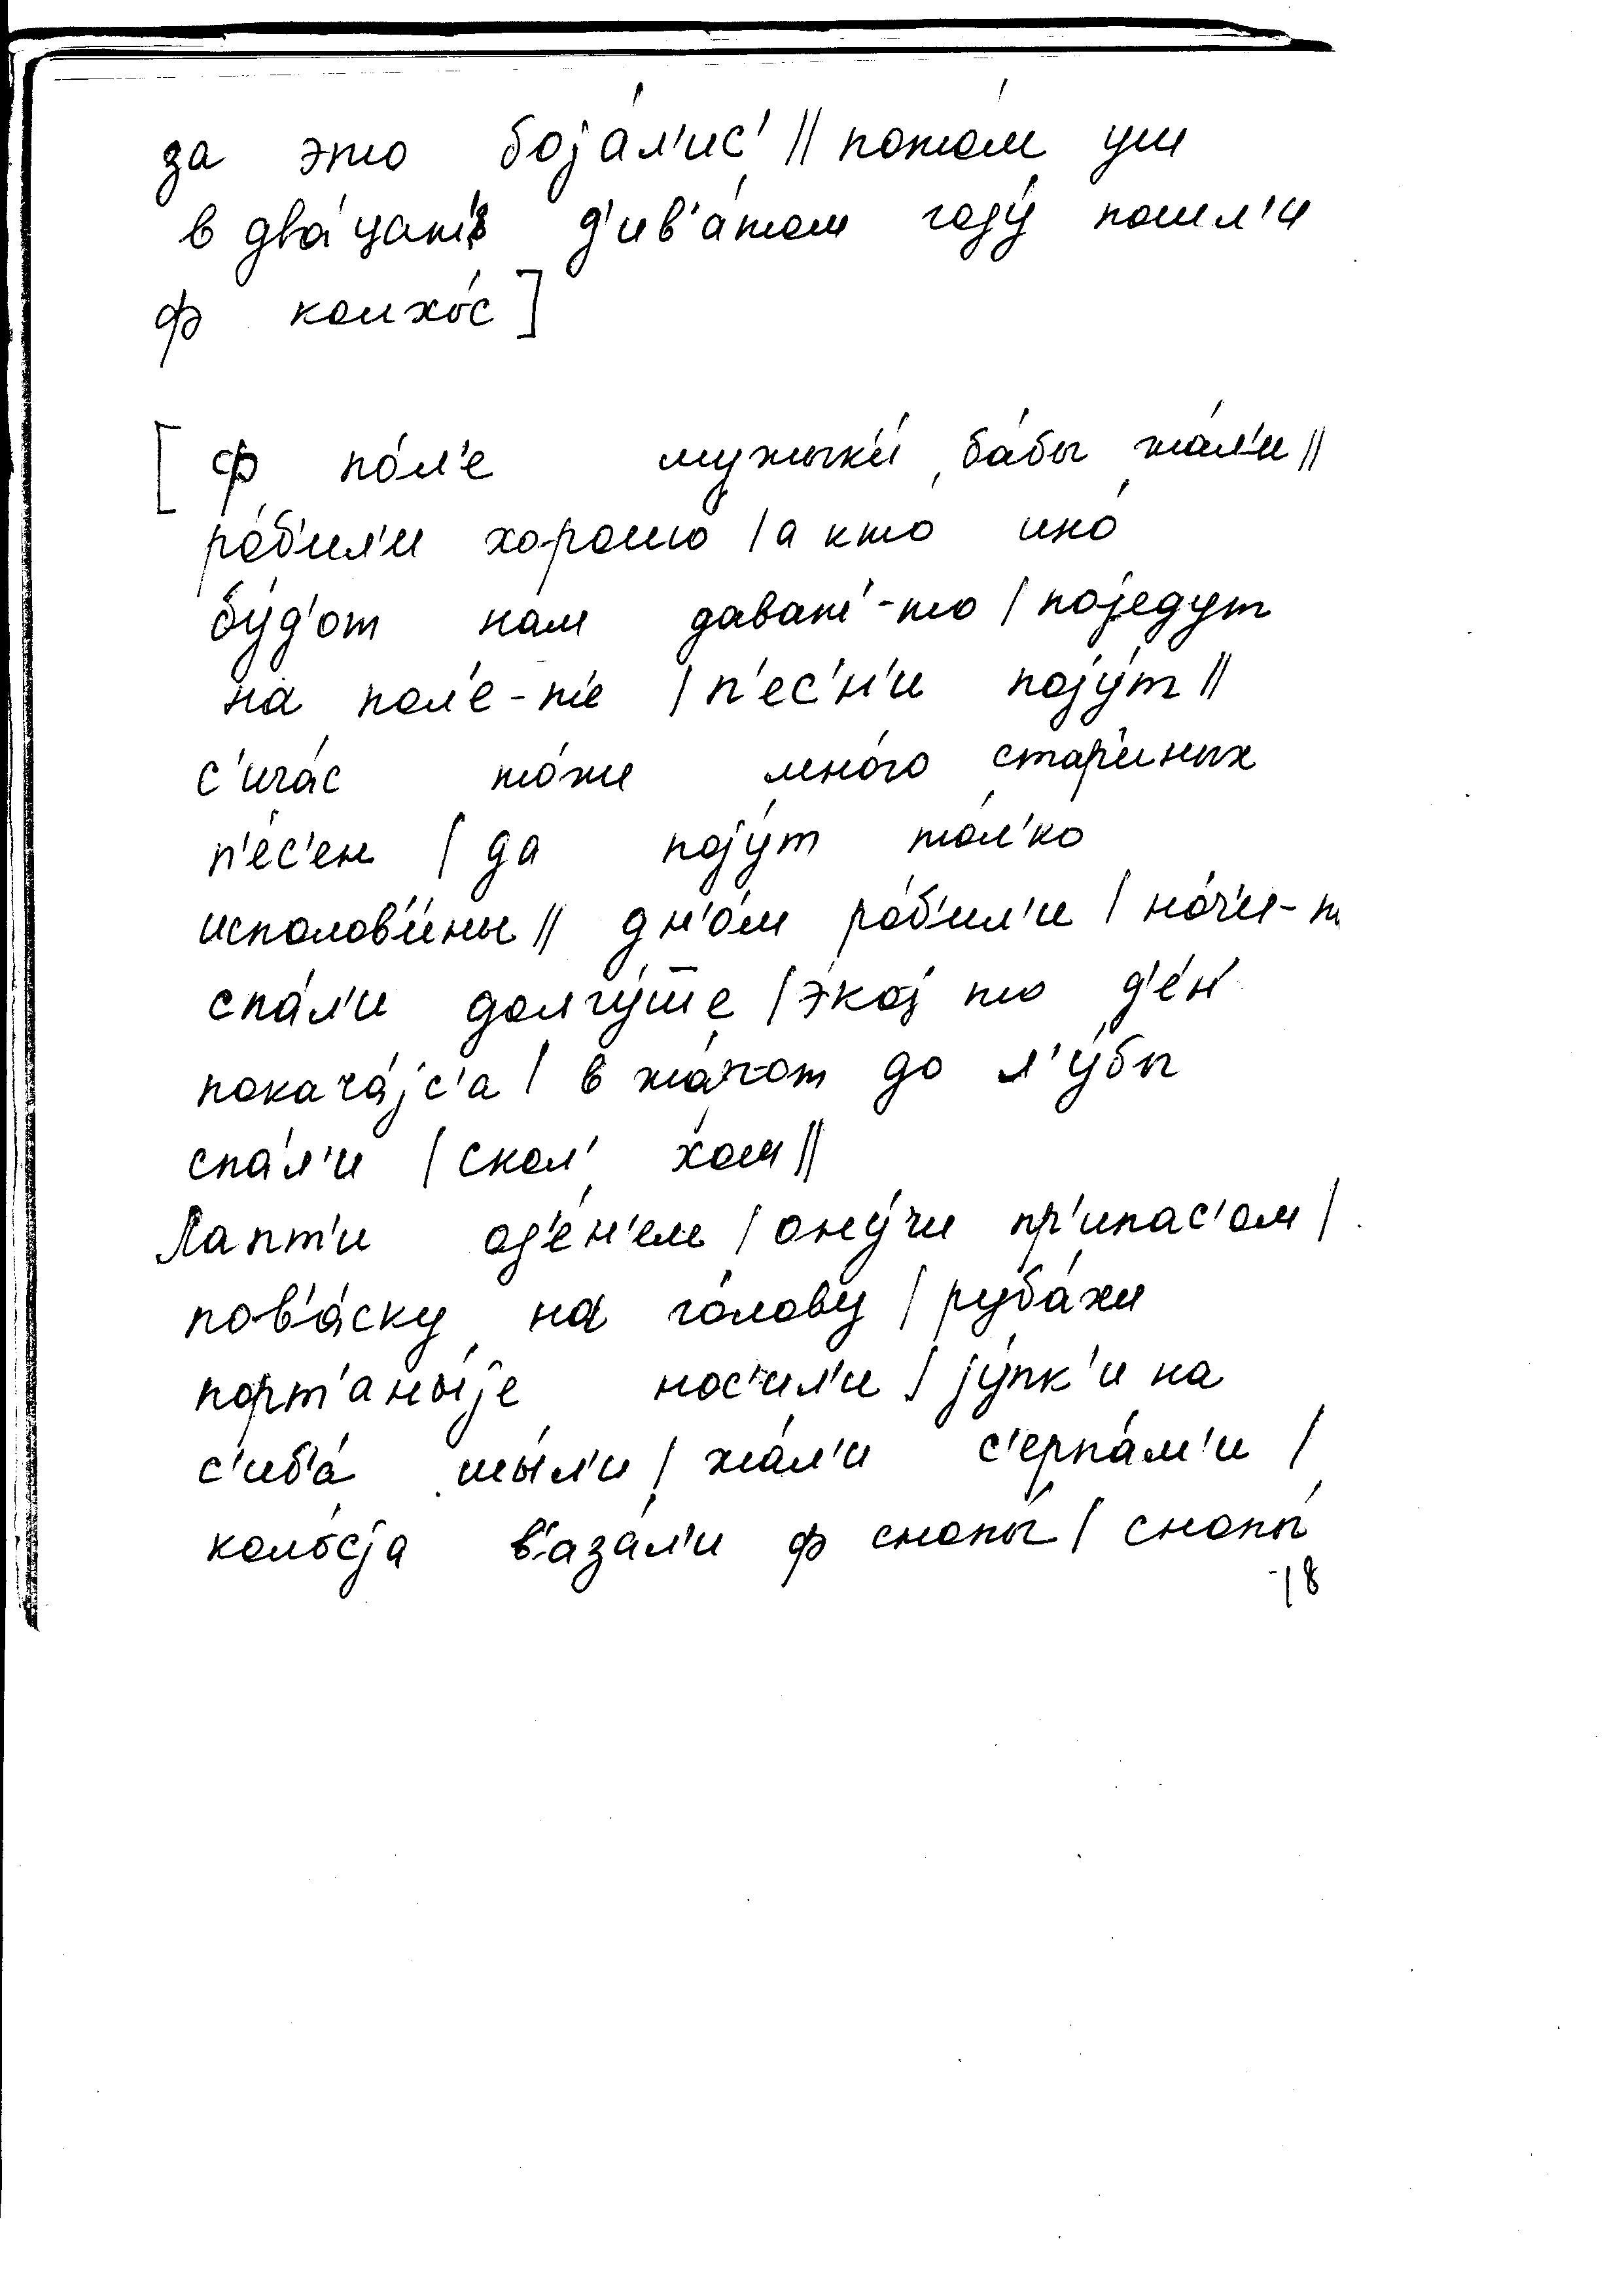 за это боjа́л'ис' || пото́м уш
в два́цат' д'ив'а́том году́ пошл'и
ф колхо́с]
[ф по́л'е мужык'и́, ба́бы жа́л'и ||
ро́б'ил'и хорошо | а кто́ ино́
бу́д'от нам дават'-то | поjедут
на́ пол'е-т'е | п'ес'н'и поjу́т ||
с'ича́с то́жи мно́го стар'и́ных
п'е́с'ен | да поjу́т то́л'ко
исполов'и́ны || дн'о́м ро́б'ил'и | но́ч'и-т
спа́л'и долгу́ше | э́коj то д'е́н'
покача́jс'а | в жа́тот до л'у́бы
спа́л'и | скол' хош ||
Лапт'и од'е́н'ем | ону́чи пр'ипас'ом |
пов'а́ску на го́лову | руба́хи
порт'аны́jе нос'ил'и | jу́пк'и на
с'иб'а́ шы́л'и | жа́л'и с'ерпа́м'и |
коло́сjа в'аза́л'и ф снопы́ | снопы́
18